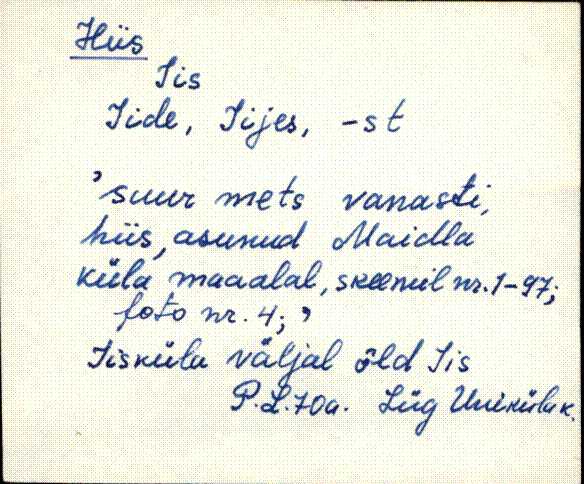 Hiis
Iis
Iide, Iijes, -st
'suur mets vanasti,
hiis, asunud Maidla
küla maaalal, skeemil nr. 1-97;
foto nr. 4;'
Iisküla väljal õld Iis
P.L. 70a. Lüg Uniküla k.